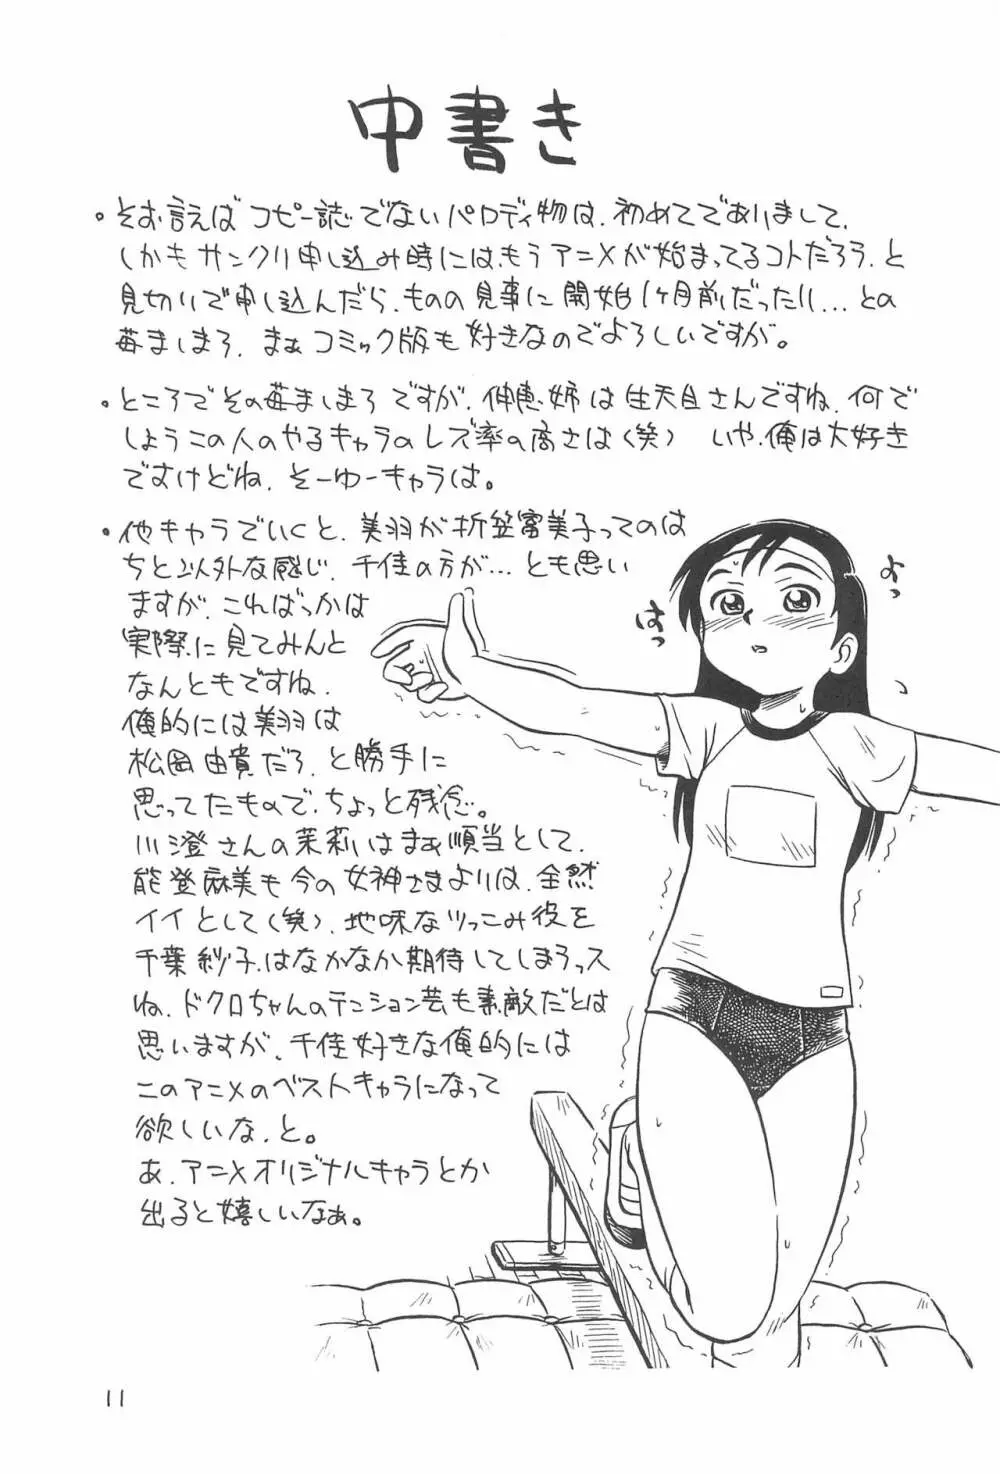 中書き
。そお言えばコピー誌でないパロディ物は、初めてでありまして、
しかもサンクリ申し込み時には、もうアニメが始まってるコトだろう、と
見切りで申し込んだら、ものの見事に開始1ヶ月前だったり…との
苺ましまろ、まぁコミック版も好きなのでよろしいですが。
。ところでその苺ましまろですが、伸恵姉は生天目さんですね、何で
しようこの人のやるキャラのレズ率の高さは(笑) いや、俺は大好き
ですけどね、そーゆーキャラは。
。他キャラでいくと、美羽が折笠富美子ってのは
ちと以外な感じ、千佳の方が…とも思い
ますが、こればっかは
実際に見てみんと
なんともですね、
俺的には美羽は
松岡由貴だろ、と勝手に
思ってたもので、ちょっと残念。
川澄さんの茉莉はまぁ順当として、
能登麻美も今の女神さまよりは、全然
イイとして(笑)、地味なツっこみ役を
千葉紗子、はなかなか期待してしまうっス
ね、ドクロちゃんのテンション芸も素敵だとは
思いますが、千佳好きな俺的には
このアニメのベストキャラになって
欲しいな、と。
あ、アニメオリジナルキャラとか
出ると嬉しいなぁ。
よっ
はっ
11